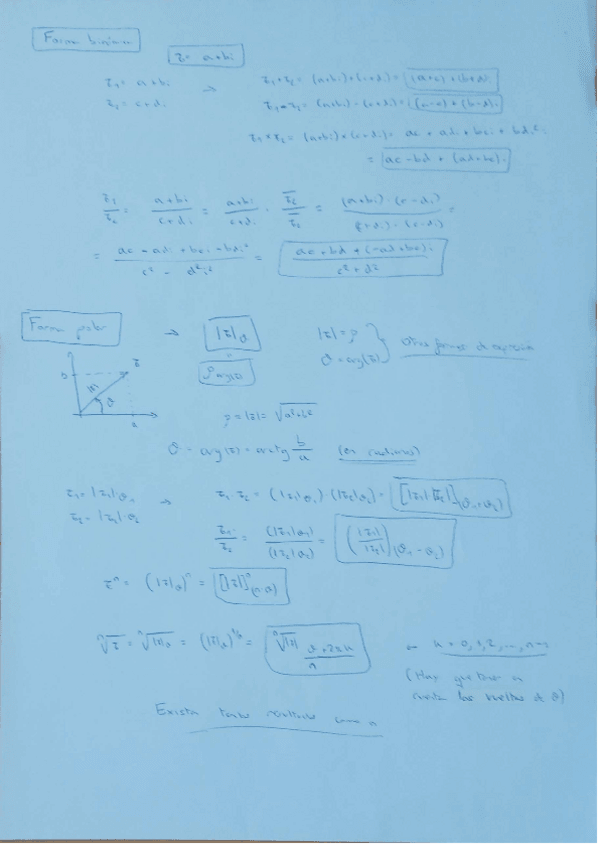 Forma binómica
z = a+bi
z₁ = a+bi → z₁+z₂ = (a+bi)+(c+di) = (a+c)+(b+d)i
z₂ = c+di (a+bi)-(c+di) = (a-c)+(b-d)i
z₁*z₂ = (a+bi)*(c+di) = ac + adi + bci + bdi²
= ac-bd + (ad+bc)i
z₁/z₂ = (a+bi)/(c+di) = (a+bi)/(c+di) · z̄₂/z̄₂ = (a+bi)·(c-di)/(c+di)·(c-di) =
= (ac - adi + bci - bdi²)/(c² - d²i²) = (ac+bd + (-ad+bc)i)/(c²+d²)
Forma polar → |z|_θ |z| = ρ
θ = arg(z) } Otras formas de
ρ_arg(z)
b z |z| θ a
ρ = |z| = √(a²+b²)
θ = arg(z) = arctg b/a (en radianes)
z₁ = |z₁|θ₁ → z₁·z₂ = (|z₁|θ₁)·(|z₂|θ₂) = [|z₁|·|z₂|]_(θ₁+θ₂)
z₂ = |z₂|θ₂
z₁/z₂ = (|z₁|θ₁)/(|z₂|θ₂) = (|z₁|/|z₂|)_(θ₁-θ₂)
zⁿ = (|z|_θ)ⁿ = [|z|]ⁿ_(n·θ)
ⁿ√z = ⁿ√|z|_θ = (|z|_θ)^(1/n) = ⁿ√|z|_(θ+2πk)/n ← k = 0,1,2,...,n-1
(Hay que tener en
cuenta las vueltas de θ)
tantos resultados como n